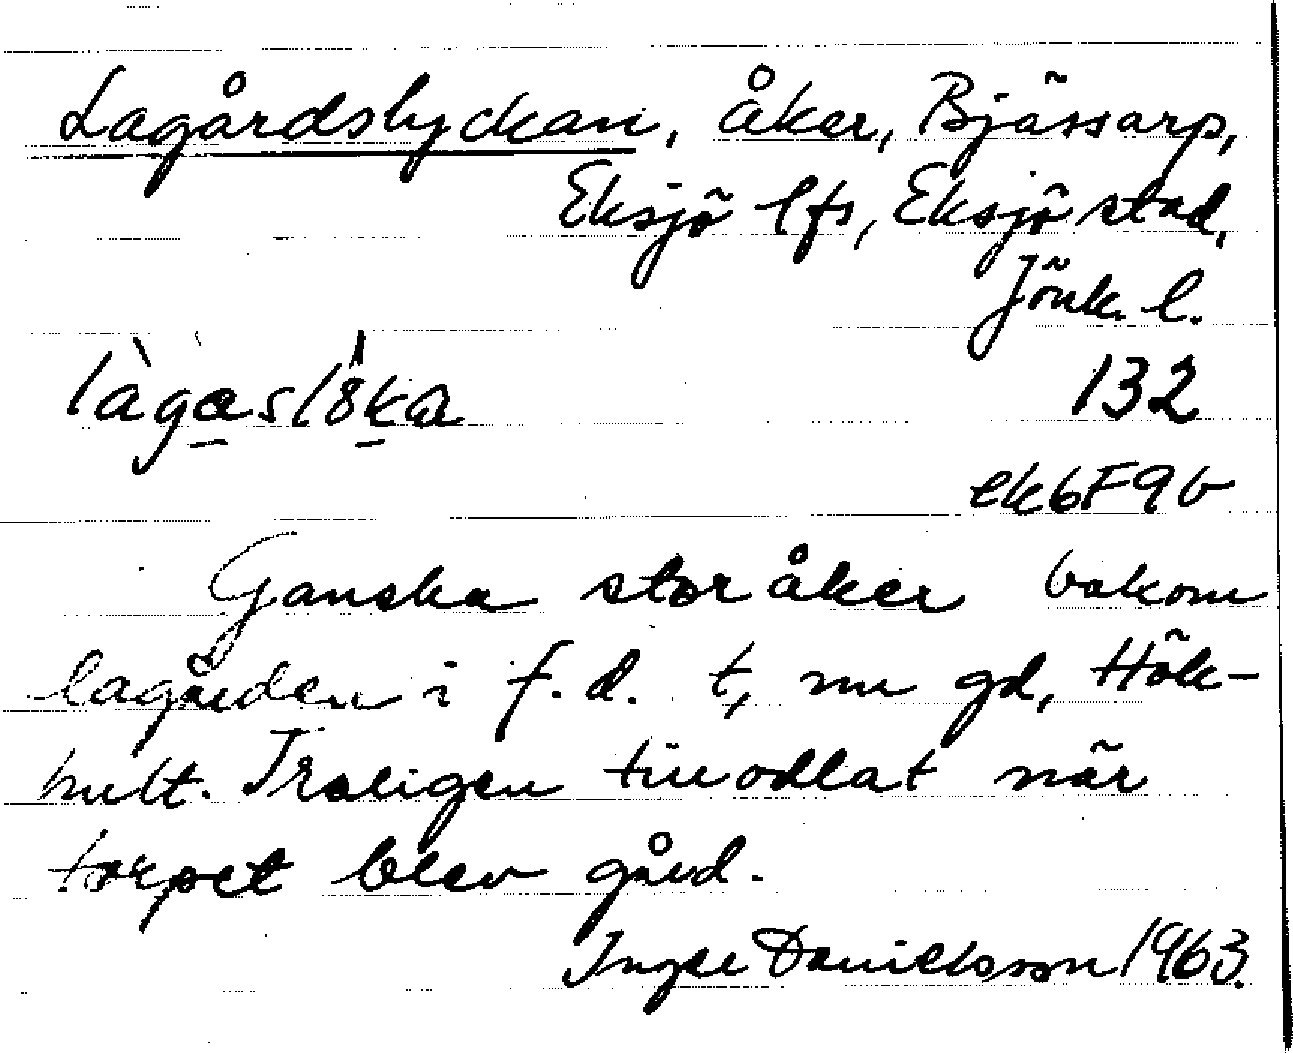 Lagårdslyckan, åker, Bjässarp,
Eksjö lfs, Eksjö stad,
Jönk. l.
132
ek6F9b
Ganska stor åker bakom
lagården i f.d. t, nu gd, Hök-
hult. Troligen tillodlat när
torpet blev gård.
Danielsson 1963.